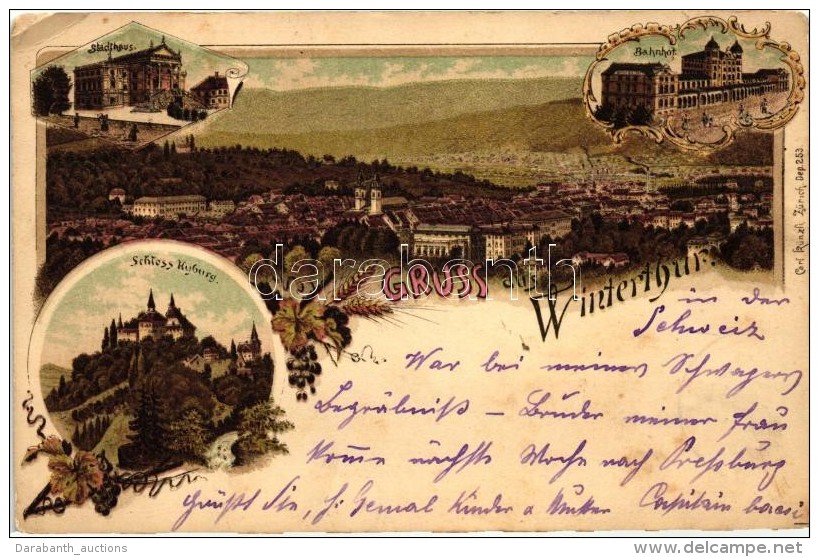 Stadthaus.
Bahnhof.
Darabanth
GRUSS aus Winterthur.
Schloss Kyburg.
Carl Künzli, Zürich, Dep. 253.
in der
Schweiz
War bei meines Schwagers
Begräbniß – Bruder meiner Frau
Komme nächste Woche nach Preßburg
Grüßt Sie, H: Gemal Kinder u Mutter Capitain bacsi
Darabanth_auctions
http://www.delcampe.net